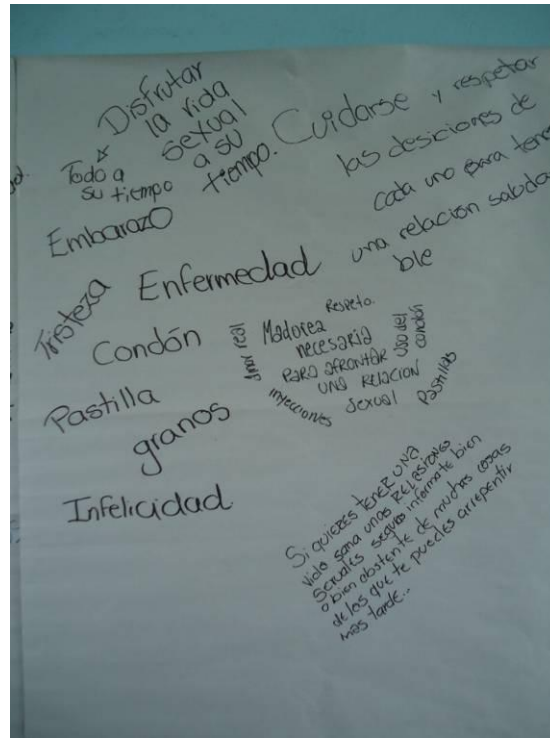 Disfrutar
la vida
sexual
a su
tiempo.
Todo a
su tiempo
Cuidarse y respetar
las desiciones de
cada uno para tener
una relacion saluda
ble
Embarazo
Enfermedad
Tristeza
Condón
Pastilla
granos
Infelicidad
Respeto.
Amor real
Madorea
necesaria
PARA AFRONTAR
UNA RELACION
Sexual
uso del
condón
inyecciones
Pastillas
Si quieres tener UNA
vida sana unas RELASIONES
Sexuales seguas informate bien
o bien abstente de muchas cosas
de las que te puedes arrepentir
más tarde...